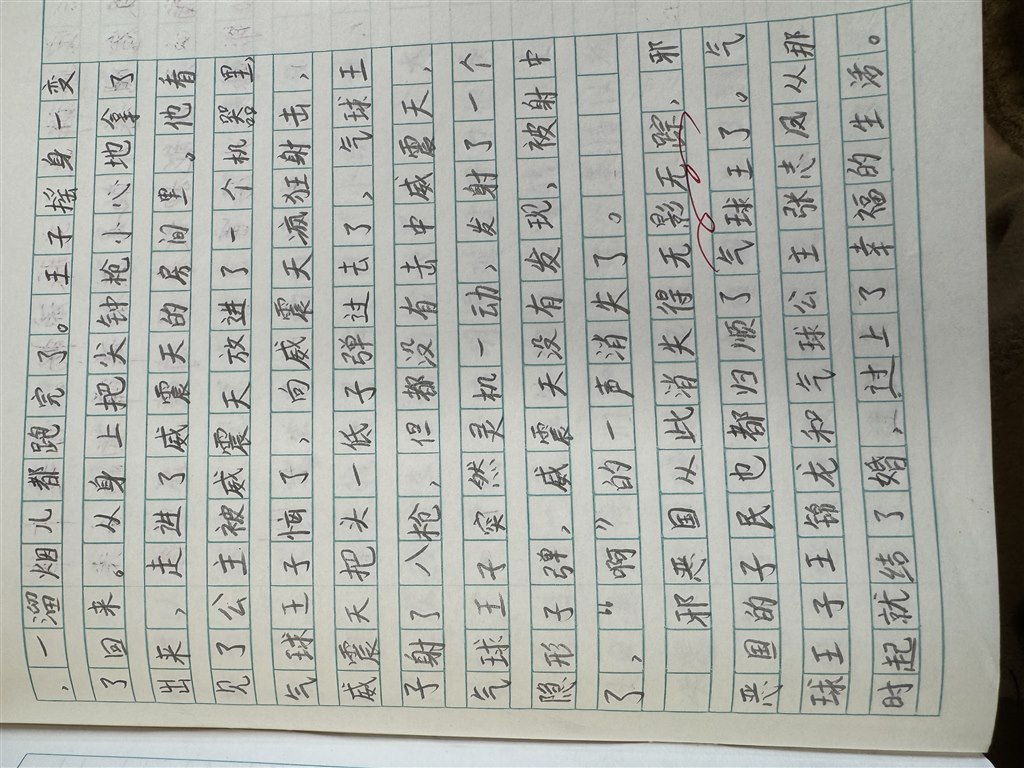 ，一溜烟儿都跑完了。王子摇身一变
了回来。从身上把尖钟枪小心地拿了
出来，走进了威震天的房间里。他看
见了公主被威震天放进了一个机器里，
气球王子恼了，向威震天疯狂射击，
威震天把头一低子弹过去了，气球王
子射了八枪，但都没有击中威震天，
气球王子突然灵机一动，发射了一个
隐形子弹，威震天没有发现，被射中
了，“啊”的一声消失了。
邪恶国从此消失得无影无踪，邪
恶国的子民也都归顺了气球王了。气
球王子王锦龙和气球公主张志凤从那
时起就结了婚，过上了幸福的生活。